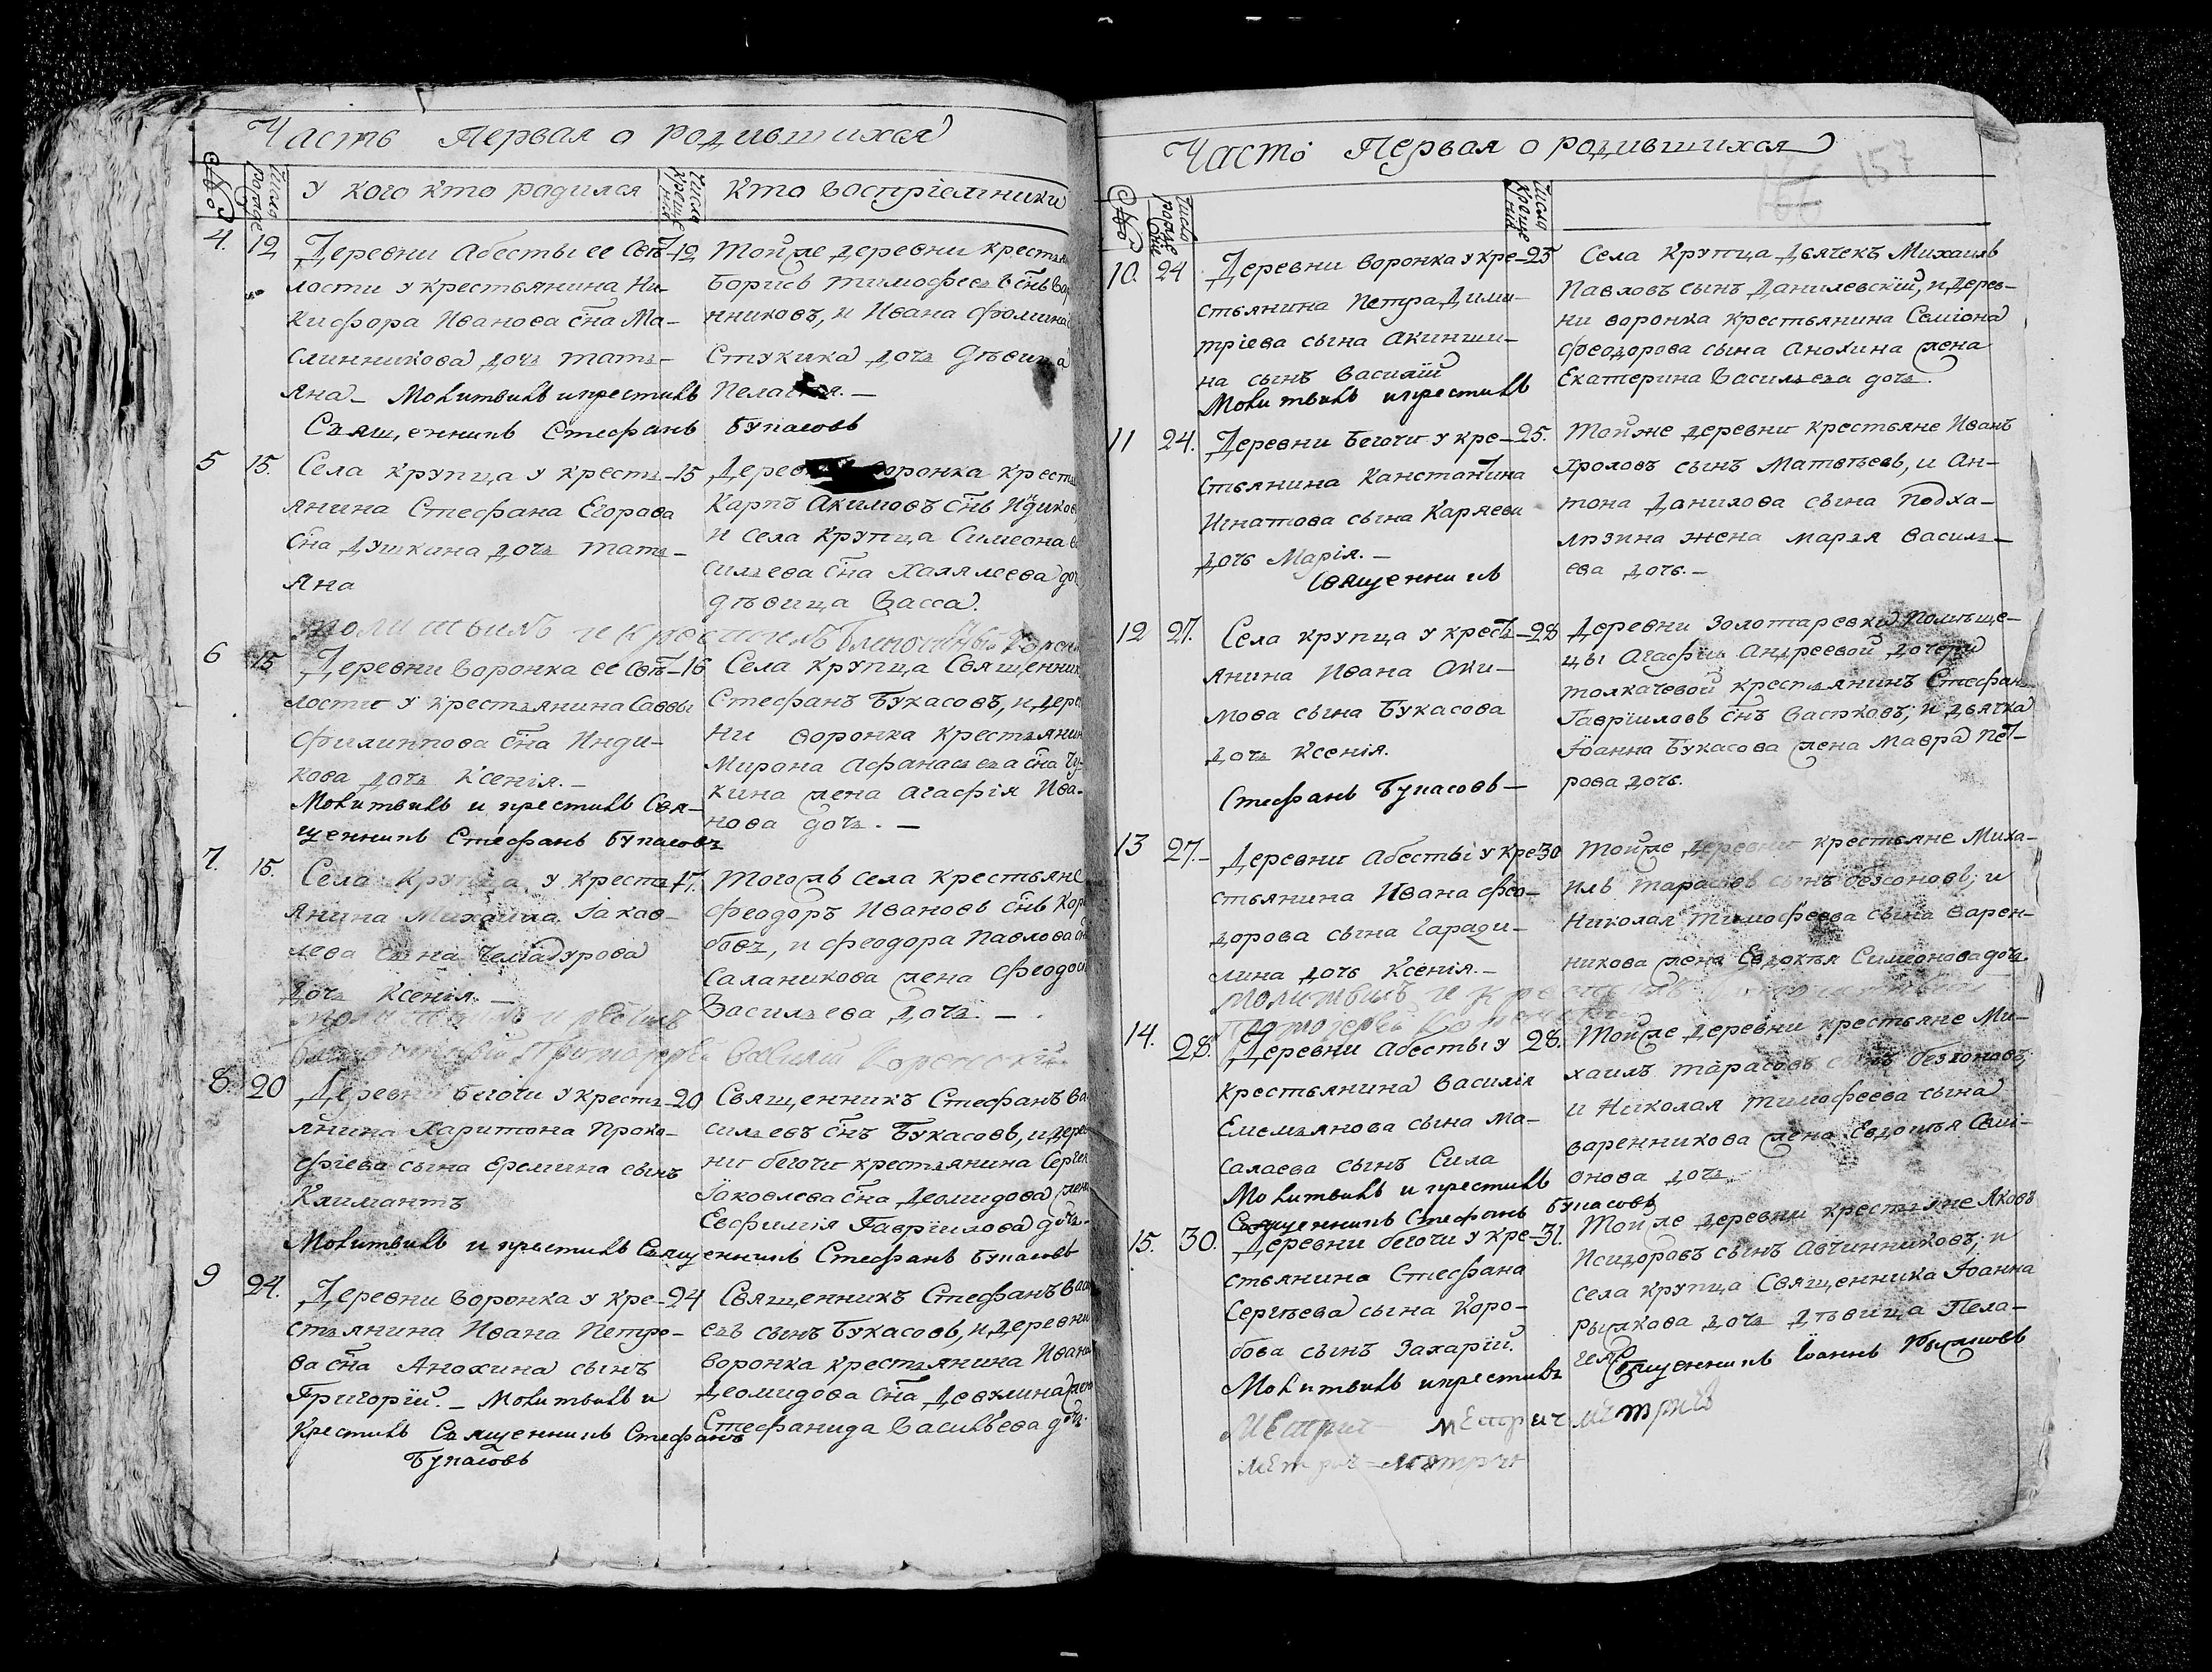 Часть Первая о родившихся
№
Число рожде
У кого кто родился
Число креще ния
Кто воспріемники
4. 12 Деревни Абесты ее Свѣ- 12
лости у крестьянина Ни-
кифора Иванова сн҃а Ма-
слинникова дочь Тать-
яна - Молитвилъ и крестилъ
Священникъ Стефанъ Букасовъ
Тойже деревни крестья
Борисъ Тимофеевъ сн҃ъ Вар
нниковъ, и Ивана Фомина
Стукика дочь дѣвица
Пелагея. -
5 15. Села Крупца у кресть- 15
янина Стефана Егорава
сн҃а Душкина дочь Тать-
яна
Воронка крест
Карпъ Акимовъ сн҃ъ Индиков
и села Крупца Симеона Ва
сильева сн҃а Халялеева доч
дѣвица Васса.
молитвилъ и крестилъ Благочинный
6 15 Деревни Воронка ее Свѣ- 16
лости у крестьянина Саввы
Филиппова сн҃а Инди-
кова дочь Ксенія. -
Молитвилъ и крестилъ Свя-
щенникъ Стефанъ Букасовъ
Села Крупца Священник
Стефанъ Букасовъ, и дере
ни Воронка крестьянин
Мирона Афанасьева сн҃а Чу-
кина жена Агафія Ива-
нова дочь. -
7. 15. Села Крупца у кресть 17.
янина Михаила Іаков-
лева сына Чемадурова
дочь Ксенія. -
Тогожъ села крестьяне
Феодоръ Ивановъ сн҃ъ Кор
бовъ, и Феодора Павлова сн
Саланикова жена Феодос
Васильева дочь. -
молитвилъ и
Благочинный Протоіерей Василій Коренскій
8. 20 Деревни Бегочи у кресть- 20
янина Харитона Проко-
фіева сына Еремина сынъ
Климантъ
Священникъ Стефанъ Ва
сильевъ сн҃ъ Букасовъ, и дерев
ни Бегочи крестьянина Сергея
Іаковлева сн҃а Деомидова жена
Евфимія Гавріилова дочь.
Молитвилъ и крестилъ Священникъ Стефанъ Букасовъ
9 24. Деревни Воронка у кре- 24
стьянина Ивана Петро-
ва сн҃а Анохина сынъ
Григорій. - Молитвилъ и
Крестилъ Священникъ Стефанъ
Букасовъ
Священникъ Стефанъ Васи
евъ сынъ Букасовъ, и деревни
Воронка крестьянина Ивана
Деомидова сн҃а Девкина жена
Стефанида Васильева дочь.
Часть Первая о родившихся
157
№
Число рожде
Число креще ния
10. 24 Деревни Воронка у кре- 25
стьянина Петра Дими-
тріева сына Акинши-
на сынъ Василій
Молитвилъ и крестилъ
Села Крупца Дьячекъ Михаилъ
Павловъ сынъ Данилевскій, и дерев-
ни Воронка крестьянина Семіона
Феодорова сына Анохина жена
Екатерина Васильева дочь.
11 24. Деревни Бегочи у кре- 25.
стьянина Канстантина
Игнатова сына Каряева
дочь Марія. -
Священникъ
Тойже деревни крестьяне Иванъ
Хроловъ сынъ Матвѣевъ, и Ан-
тона Данилова сына Подха-
люзина жена Марья Василь-
ева дочь. -
12 27. Села Крупца у кресть- 28
янина Ивана Аки-
мова сына Букасова
дочь Ксенія.
Стефанъ Букасовъ -
Деревни Золотаревки помѣще-
цы Агафіи Андреевой дочери
Толкачевой крестьянинъ Стефан
Гавріиловъ сн҃ъ Васюковъ, и дьячка
Іоанна Букасова жена Мавра Пет-
рова дочь.
13 27. - Деревни Абесты у кре- 30
стьянина Ивана Фео-
дорова сына Гаради-
лина дочь Ксенія. -
Тойже деревни крестьяне Миха-
илъ Тарасовъ сынъ Безсоновъ, и
Николая Тимофеева сына Варен-
никова жена Евдокѣя Симеонова дочь.
молитвилъ и крестилъ
Протоіерей
14. 28. Деревни Абесты у 28.
крестьянина Василія
Емельянова сына Ма-
салаева сынъ Сила
Молитвилъ и крестилъ
Священникъ Стефанъ Букасовъ
Тойже деревни крестьяне Ми-
хаилъ Тарасовъ сынъ Безсоновъ,
и Николая Тимофеева сына
Варенникова жена Евдокѣя Семі-
онова дочь
15. 30. Деревни Бегочи у кре- 31.
стьянина Стефана
Сергѣева сына Коро-
бова сынъ Захарій.
Молитвилъ и крестилъ
Тойже деревни крестьяне Яковъ
Исидоровъ сынъ Авчинниковъ, и
села Крупца Священника Іоанна
Рыжкова дочь дѣвица Пела-
гея
Священникъ Іоаннъ Рыжковъ
Метрич метрич метрич
метрич метрич